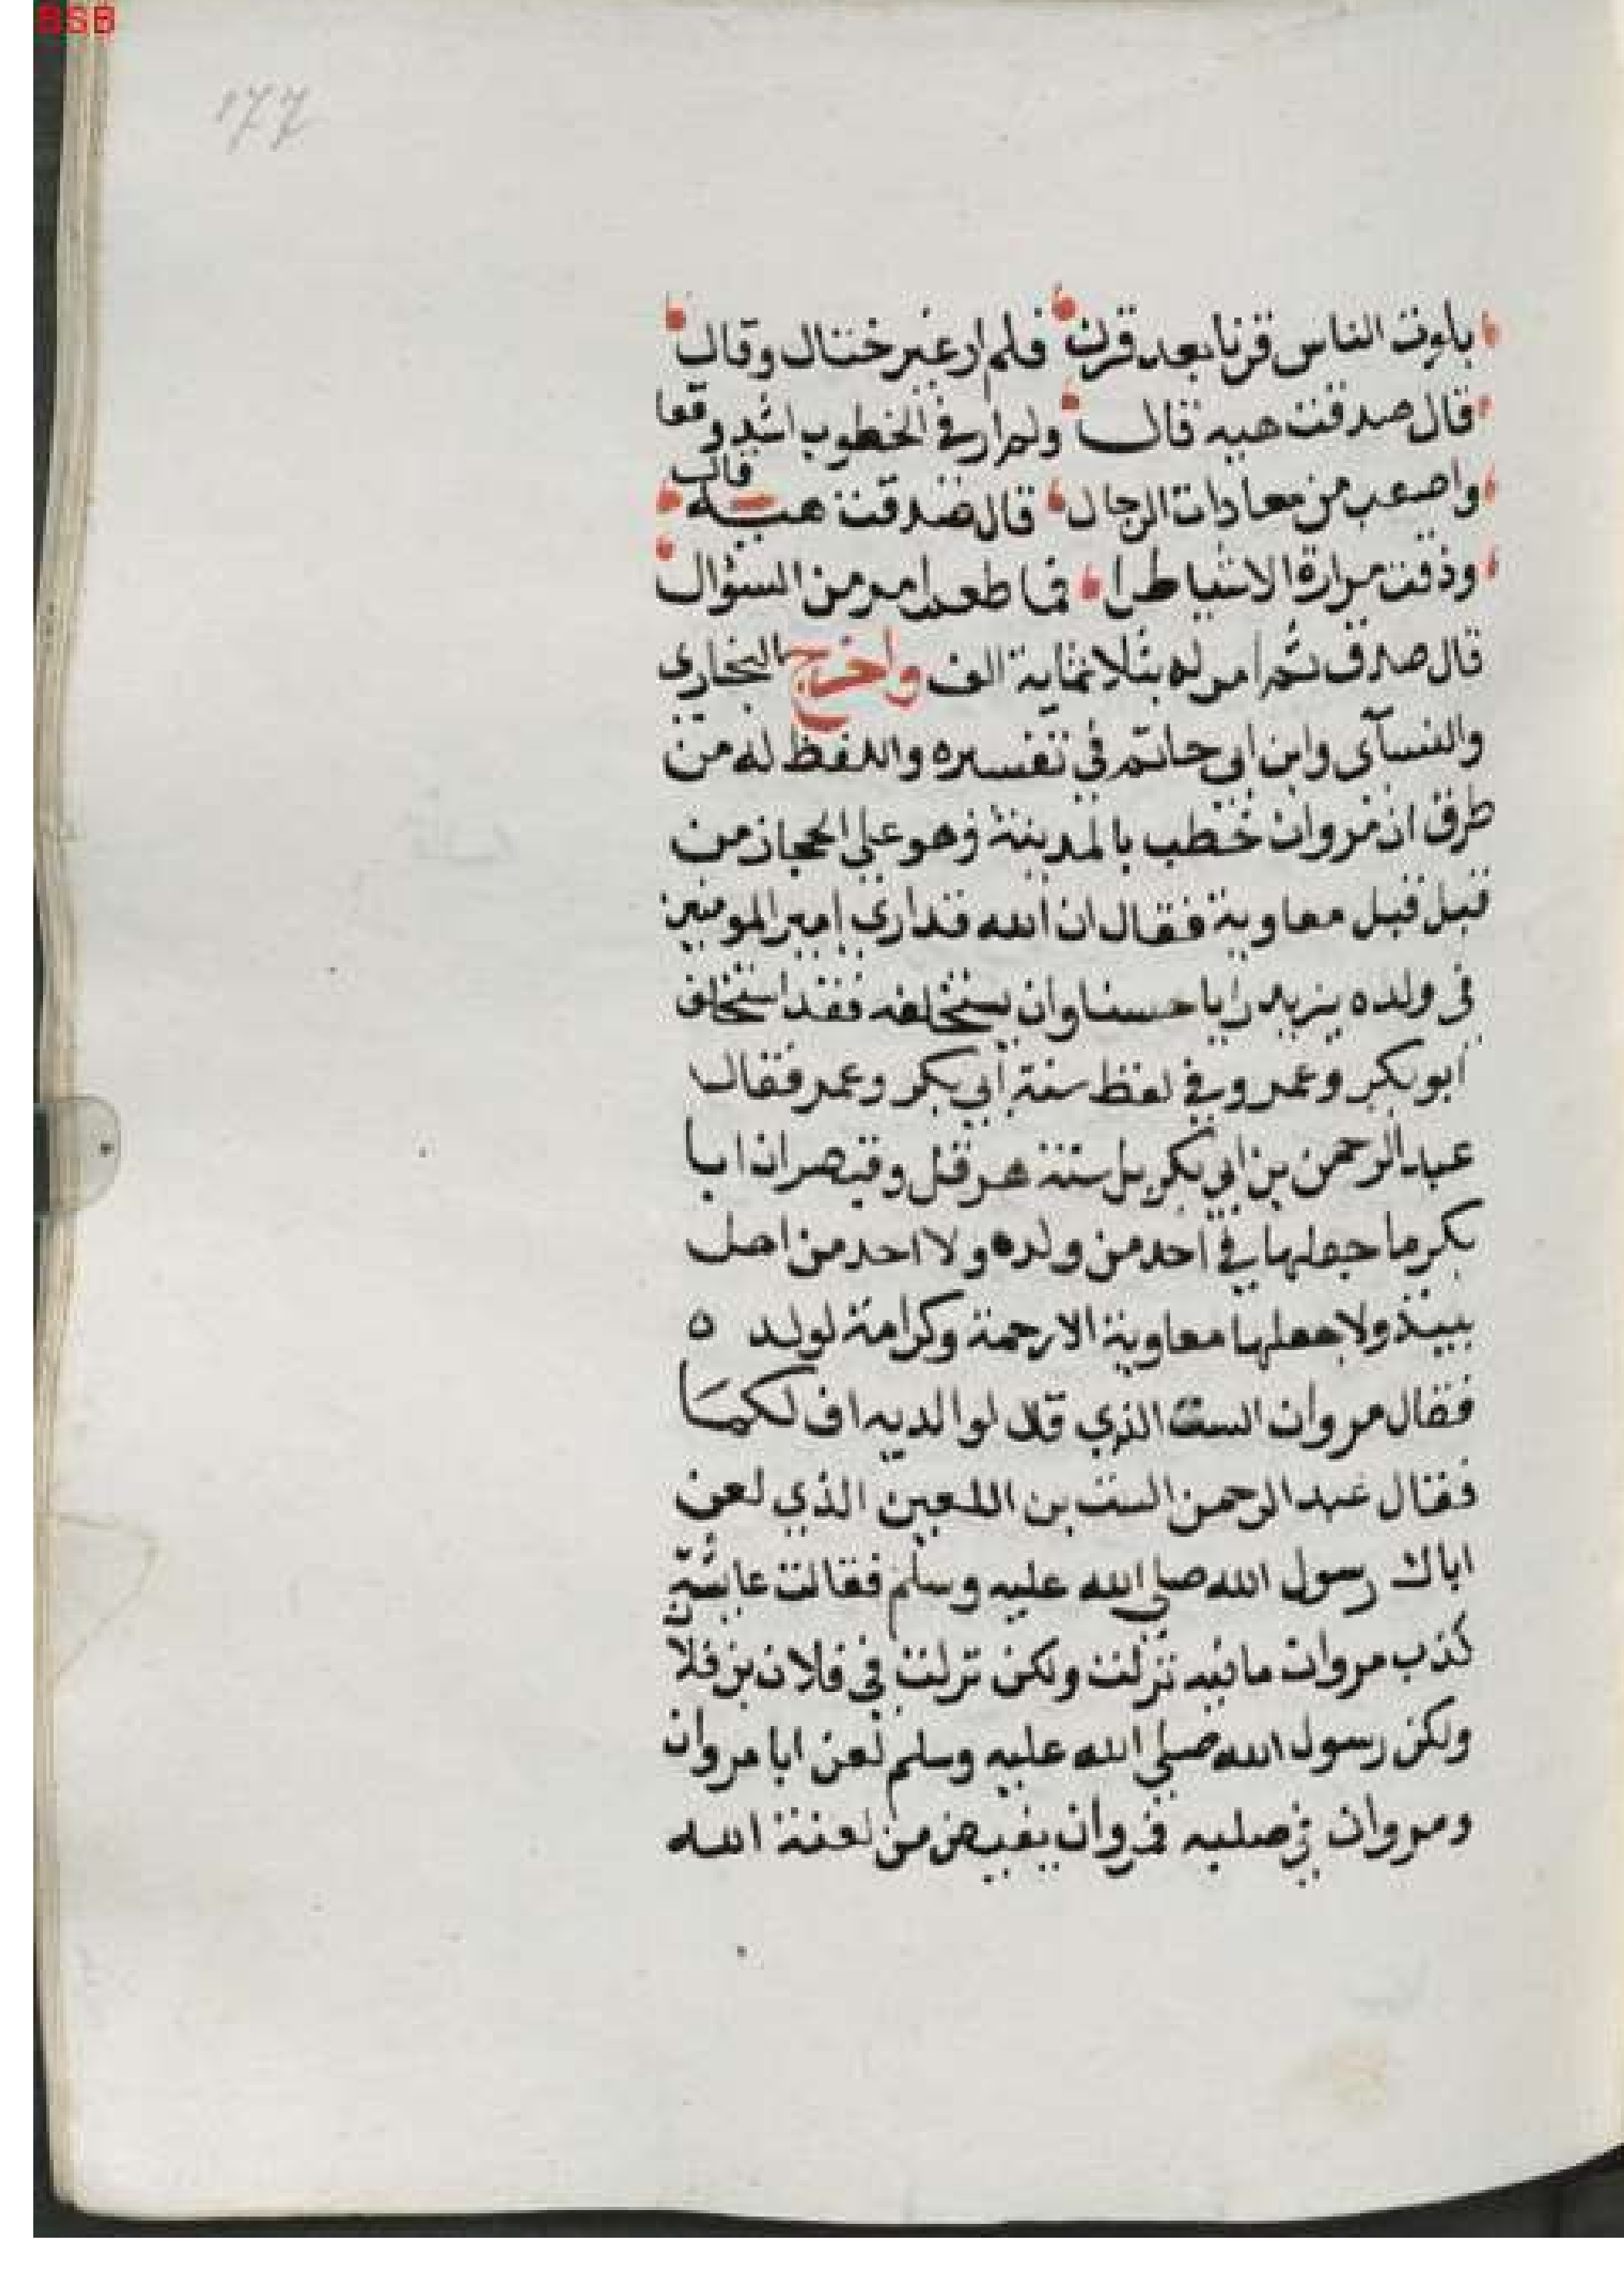 BSB
177
بلوت الناس قرنا بعد قرن فلم ار غير ختال وقال
قال صدقت هيه قال ولم ار في الخطوب اشد وقعا
واصعب من معادات الرجال قال صدقت هيه قال
وذقت مرارة الاشياطرا فما طعم امر من السؤال
قال صدق ثم امر له بثلاثماية الف واخرج البخاري
والنسآى وابن ابى حاتم في تفسيره واللفظ له من
طرق ان مروان خطب بالمدينة وهو على الحجاز من
قبل قبل معاوية فقال ان الله قد ارى امير المومنين
فى ولده يزيد رايا حسنا وان يستخلفه فقد استخلف
ابو بكر وعمر وفي لفظ سنة أبي بكر وعمر فقال
عبد الرحمن بن ابي بكر بل سنة هرقل وقيصر ان ابا
بكر ما جعلها في احد من ولده ولا احد من اهل
بيته ولا جعلها معاوية الا رحمة وكرامة لولد ه
فقال مروان الست الذي قال لوالديه اف لكما
فقال عبد الرحمن الست بن اللعين الذي لعن
اباك رسول الله صلي الله عليه وسلم فقالت عايشة
كذب مروان ما فيه نزلت ولكن نزلت في فلان بن فلان
ولكن رسول الله صلي الله عليه وسلم لعن ابا مروان
ومروان في صلبه فمروان يفيض من لعنة الله